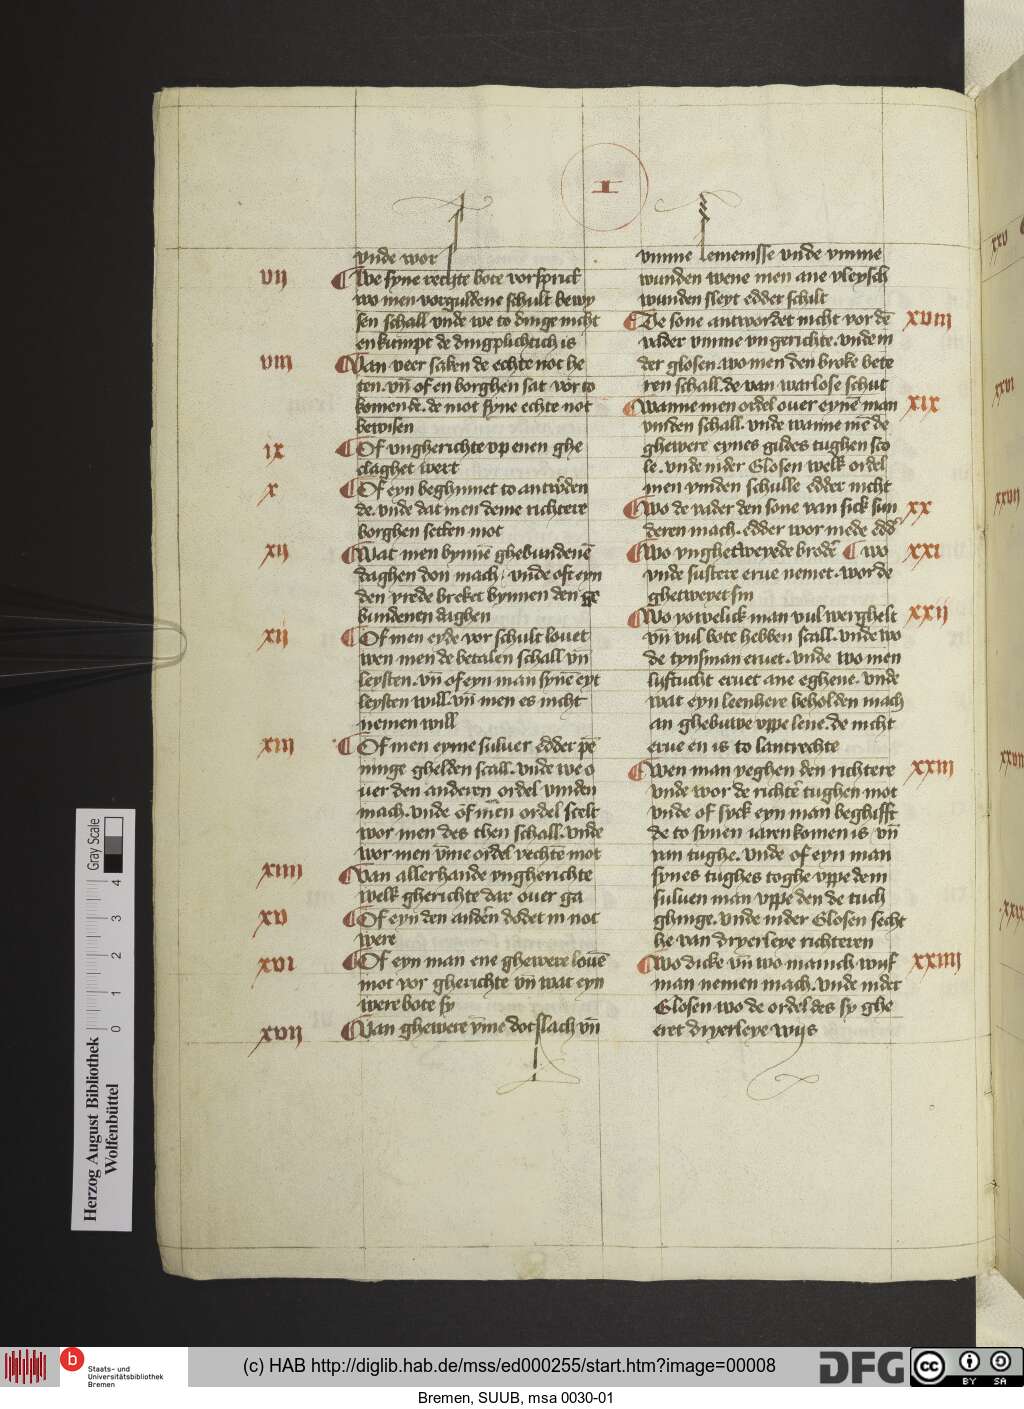 I
vnde wor
VII We syne rechte bote vorsprict
wo men vorguldene schult bewy
sen schall vnde we to dinge nicht
enkumpt de dingplichtich is
VIII Van veer saken de echte not he
ten. vn̄ of en borghen sat vor to
komende. de mot syne echte not
bewisen
IX Of vngherichte vp enen ghe
claghet wert
X Of eyn beghinnet to antwerden
de. vnde dat men deme richtere
borghen setten mot
XII Wat men bynnē ghebundenē
daghen don mach. vnde oft eyn
den vrede breket bynnen den ge
bundenen daghen
XII Of men erde vor schult louet
wen men de betalen schall vn̄
leysten. vn̄ of eyn man synē eyt
leysten will. vn̄ men es nicht
nemen will
XIII Of men eyme suluer edder pē
ninge ghelden scall. vnde we o
uer den anderen ordel vinden
mach. vnde of men ordel scelt
wor men des then schall. vnde
wor men v̄me ordel vechtē mot
XIIII Van allerhande vngherichte
welk gherichte dar ouer ga
XV Of eyn den andern dodet in not
were
XVI Of eyn man ene ghewere louē
mot vor gherichte vn̄ wat eyn
were bote sy
XVII Van ghewere v̄me dotslach vn̄
vmme lemenisse vnde vmme
wunden wene men ane vleysch
wunden sleyt edder schilt
De sone antwordet nicht vor dē XVIII
vader vmme vngerichte. vnde in
der glosen. wo men den broke bete
ren schall. de van warlose schut
wanne men ordel ouer eynē man XIX
vinden schall. vnde wanne mē de
ghewere eynes gildes tughen sco
le. vnde in der Glosen welk ordel
men vinden schulle edder nicht
Wo de vader den sone van sick sun XX
deren mach. edder wor mede edd'
Wo vnghetweyede broder wo XXI
vnde sustere erue nemet. wor de
ghetweyet sin
Wo yowelick man vul werghelt XXII
vn̄ vul bote hebben scall. vnde wo
de tynsman eruet. vnde wo men
lyftucht eruet ane eghene. vnde
wat eyn leenhere beholden mach
an ghebuwe vppe lene. de nicht
erue en is to lantrechte
Wen man veghen den richtere XXIII
vnde wor de richter tughen mot
vnde of syck eyn man beghifft
de to synen iaren komen is vn̄
van tughe. vnde of eyn man
synes tughes toghe vppe dem
suluen man vppe den de tuch
ghinge. vnde in der Glosen secht
he van dryerleye richteren
Wo dicke vn̄ wo manich wiif XXIIII
man nemen mach. vnde in der
Glosen wo de ordel des sy ghe
eret dryerleye wijs
XXV
XXVI
XXVII
Gray Scale
4
3
2
1
0
Herzog August Bibliothek
Wolfenbüttel
b
Staats- und
Universitätsbibliothek
Bremen
(c) HAB http://diglib.hab.de/mss/ed000255/start.htm?image=00008
DFG
cc
BY SA
Bremen, SUUB, msa 0030-01